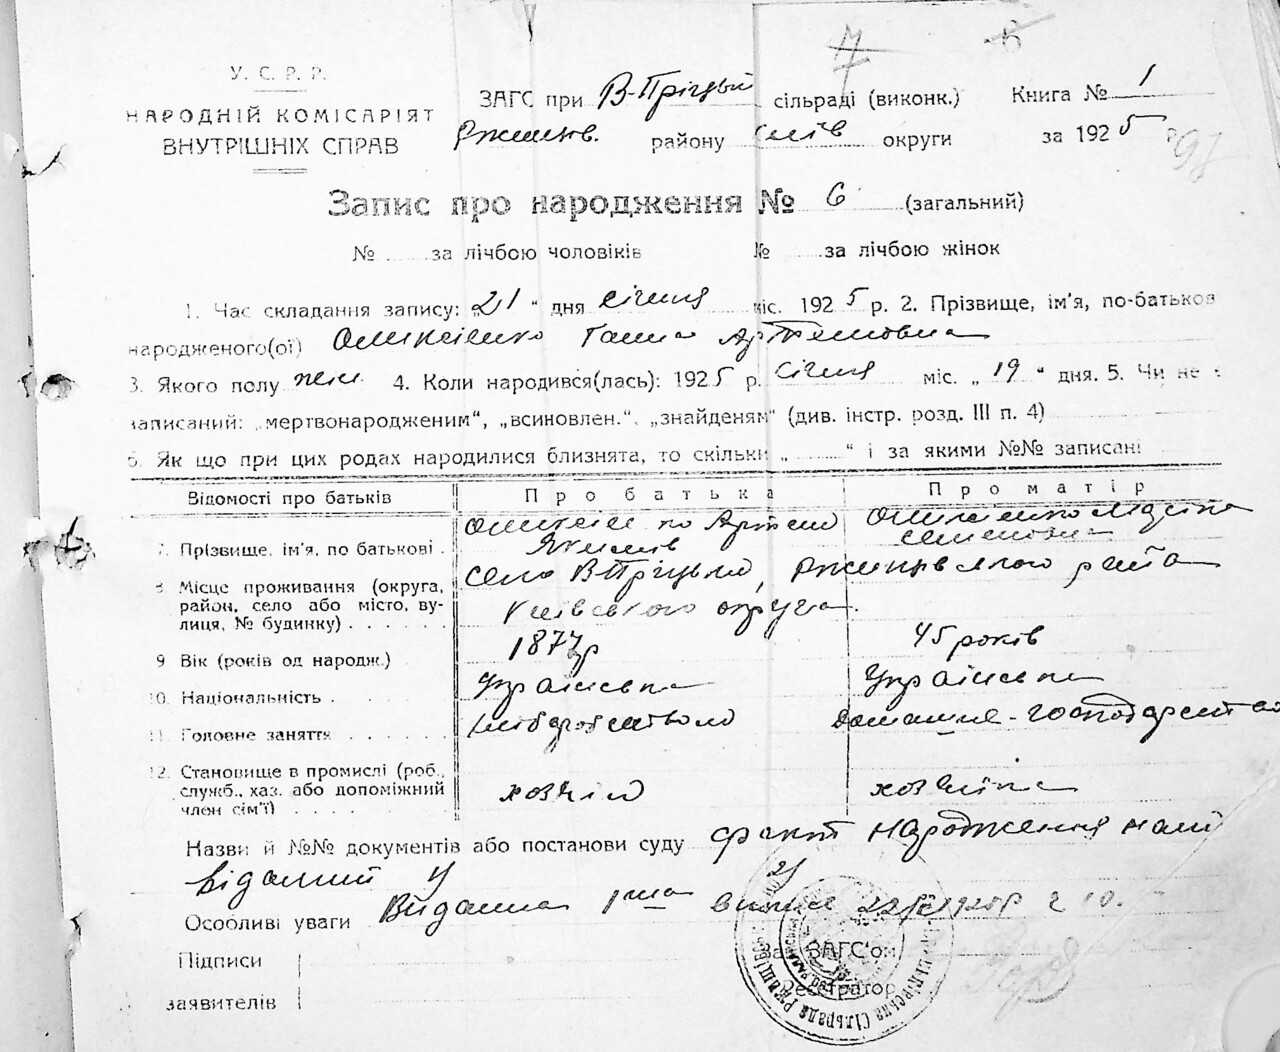 У. С. Р. Р.
НАРОДНІЙ КОМІСАРІЯТ
ВНУТРІШНІХ СПРАВ
7
ЗАГС при В-Пріцькій сільраді (виконк.) Книга № 1
Ржищів. району Київ округи за 1925 р.
98
Запис про народження № 6 (загальний)
№ за лічбою чоловіків № за лічбою жінок
1. Час складання запису: „21“ дня січня міс. 1925 р. 2. Прізвище, ім'я, по-батькові
народженого(ої) Оликсієнко Ганна Артемовна
3. Якого полу жін 4. Коли народився(лась): 1925 р. січня міс. „19“ дня. 5. Чи не є
записаний: „мертвонародженим“, „всиновлен.“, „знайденям“ (див. інстр. розд. III п. 4)
6. Як що при цих родах народилися близнята, то скільки „ “ і за якими №№ записані
Відомості про батьків Про батька Про матір
7. Прізвище, ім'я, по батькові . Оликсієнко Артем Якимів Оликсієнко Семеновна
8 Місце проживання (округа, район, село або місто, вулиця, № будинку) . . . . . . село В-Пріцьки, Ржищівського района
Київського округа.
9 Вік (років од народж.) 1877 р 45 років
10. Національність . Українець Українка
11. Головне заняття хліборобство Домашнє-господарство
12. Становище в промислі (роб., служб., хаз. або допоміжний член сім'ї) . . . . хозяїн хозяйка
Назви й №№ документів або постанови суду факт народження нам
відомий
Особливі уваги Видана виписка
Підписи
заявителів
Зав. ЗАГС'ом
Реєстратор